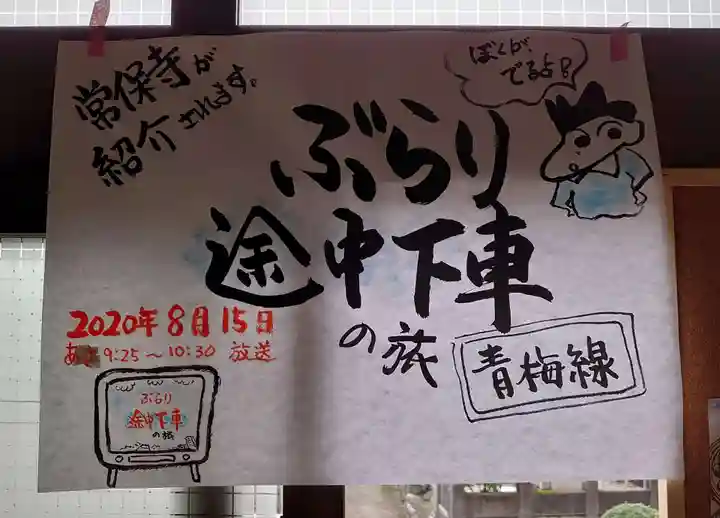 常保寺が
紹介されます。
ぼくが、
でる占８
ぶらり
途中下車
の旅
青梅線
2020年8月15日
あさ9:25〜10:30 放送
ぶらり
途中下車
の旅